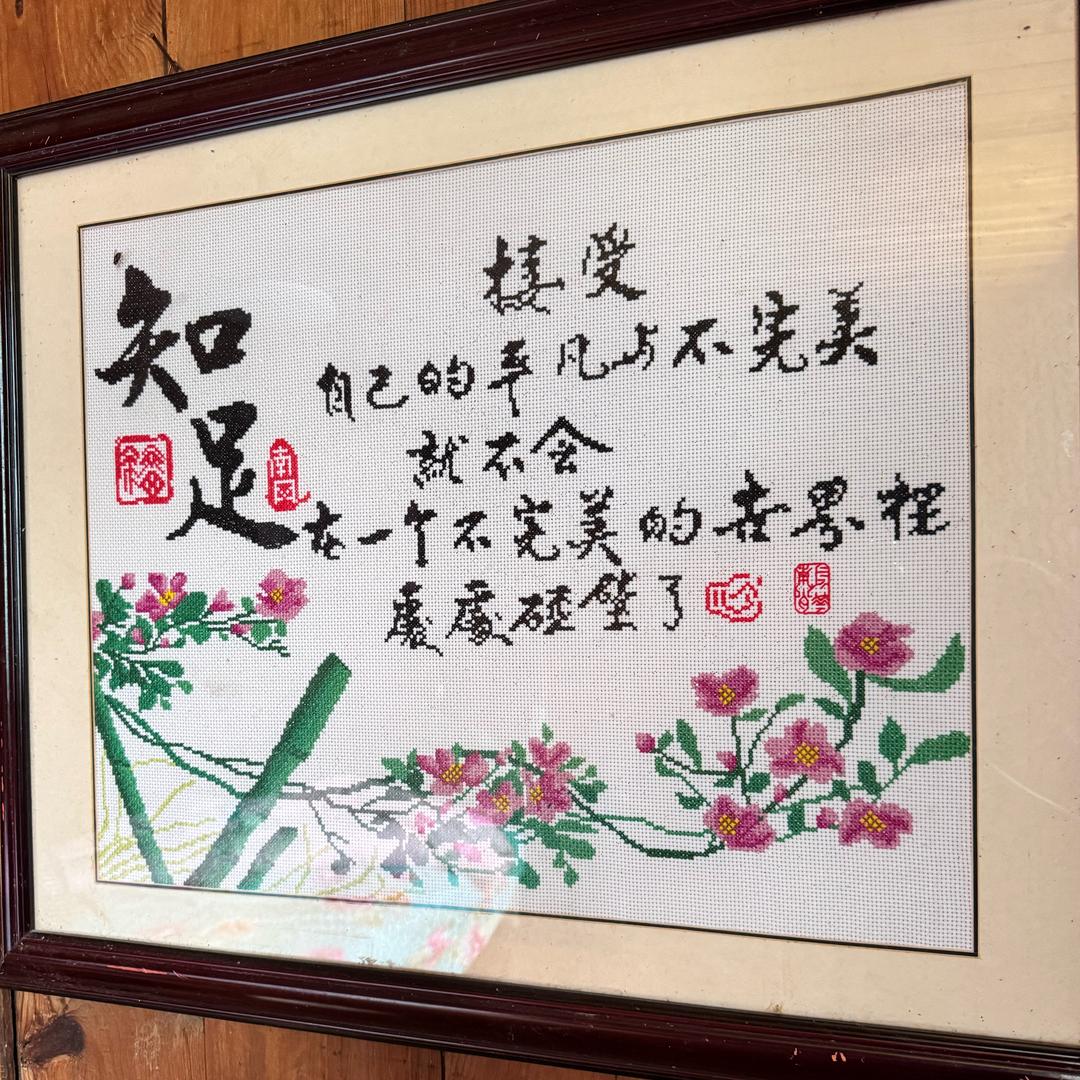 知足
接受
自己的平凡与不完美
就不会
在一个不完美的世界裡
處處碰壁了